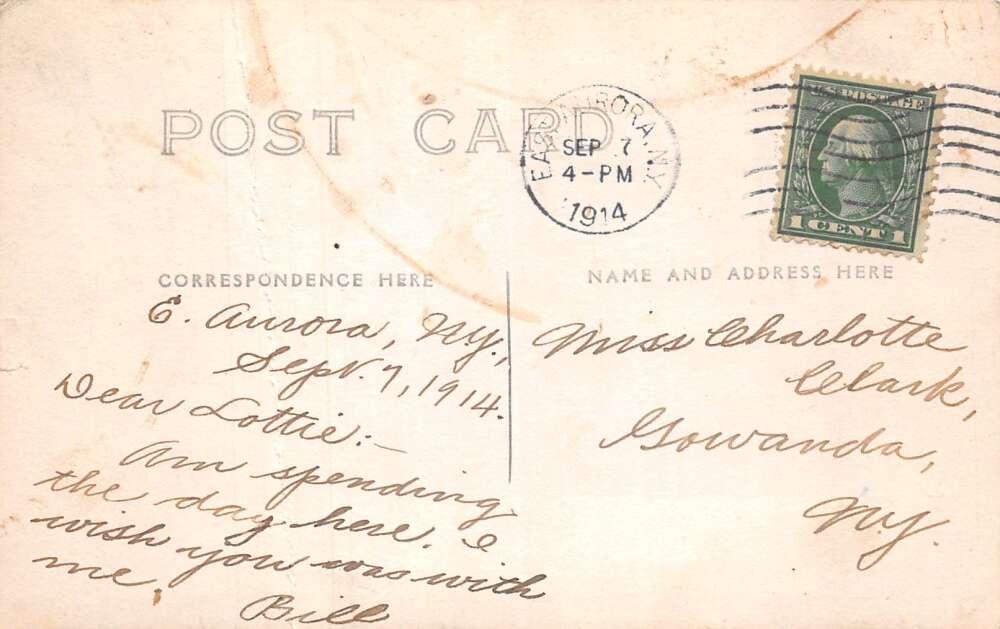 POST CARD
EAST AURORA, N.Y.
SEP 7
4-PM
1914
U.S. POSTAGE
1 CENT 1
CORRESPONDENCE HERE
NAME AND ADDRESS HERE
E. Aurora, N.Y.,
Sept. 7, 1914.
Dear Lottie:-
Am spending
the day here. I
wish you was with
me.
Bill
Miss Charlotte
Clark,
Gowanda,
N.Y.